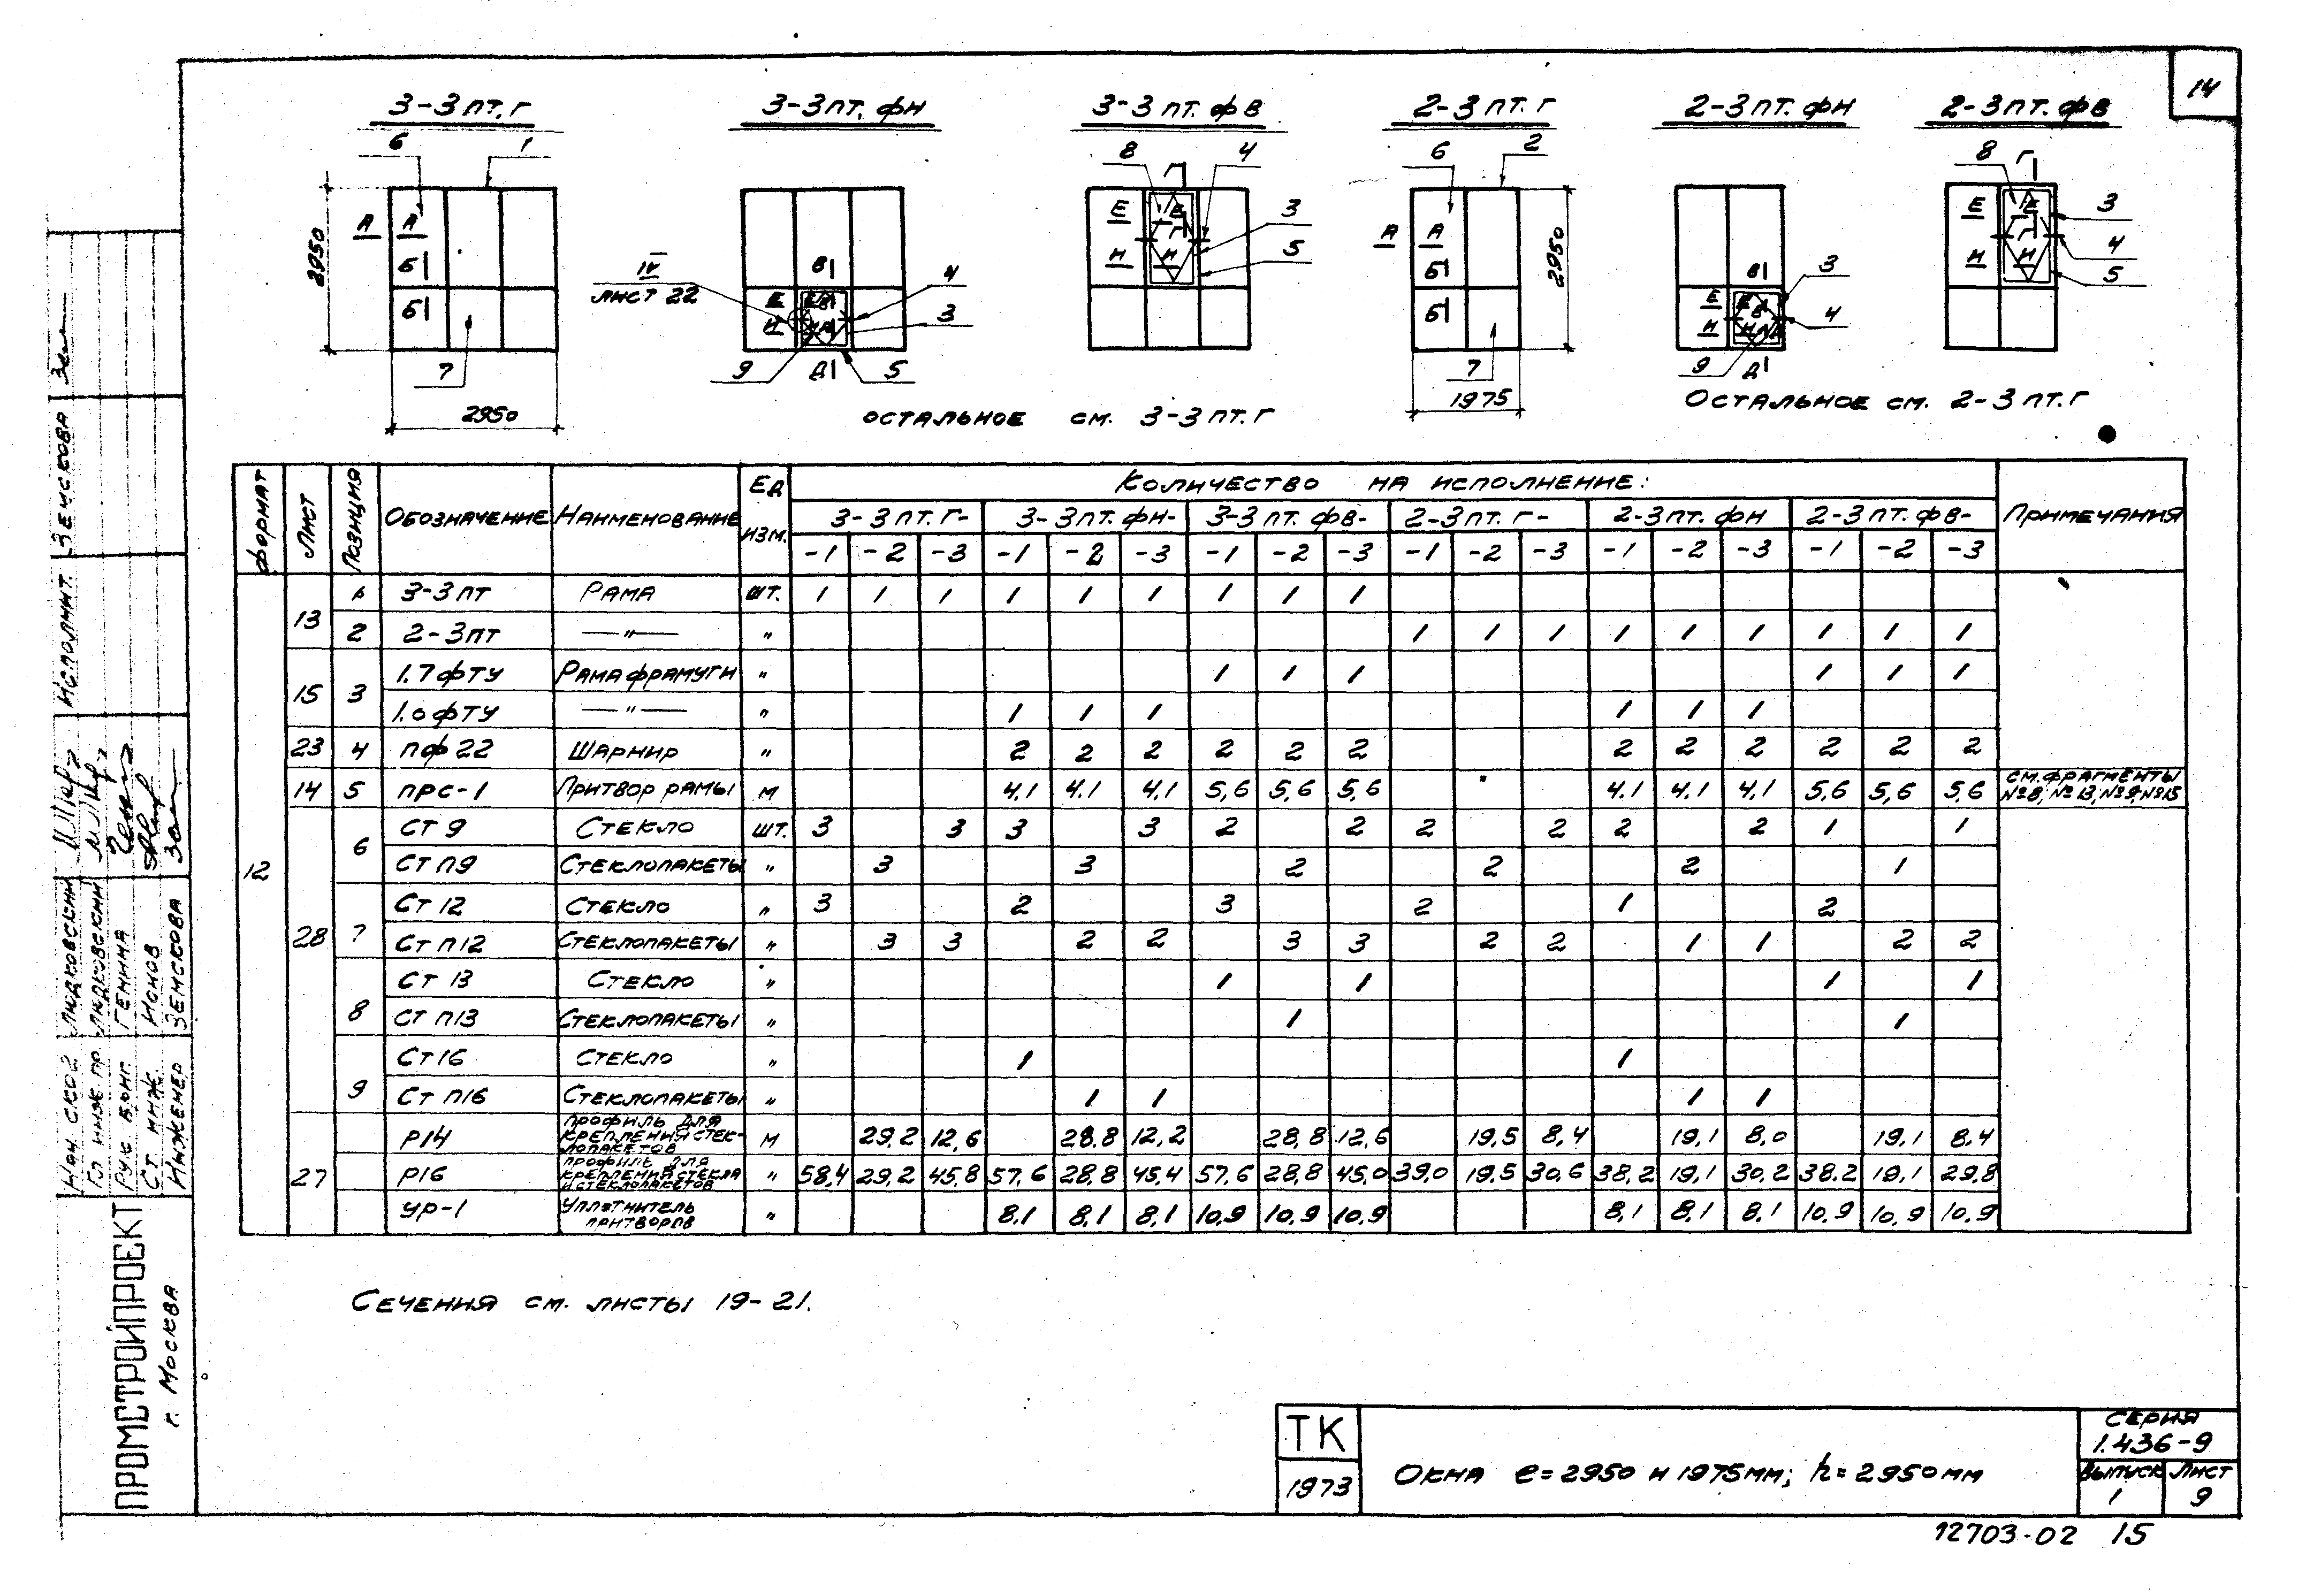 14
3-3пт.г
3-3пт.фн
3-3пт.фв
2-3пт.г
2-3пт.фн
2-3пт.фв
6 1 8 4 6 2 8 Г
А А Б Б 7 2950 2950
IV
лист 22
В Е Е В И И 4 3 9 Д 5
Е Е Г И И 3 5
А А Б Б 7 2950 1975
В Е Е В И И 3 4 9 Д
Е Е Г И И 3 4 5
остальное см. 3-3пт.г
Остальное см. 2-3пт.г
Формат Лист Позиция Обозначение Наименование Ед. изм. Количество на исполнение: Примечания
3-3пт.г- 3-3пт.фн- 3-3пт.фв- 2-3пт.г- 2-3пт.фн 2-3пт.фв-
-1 -2 -3 -1 -2 -3 -1 -2 -3 -1 -2 -3 -1 -2 -3 -1 -2 -3
12
13 1 3-3пт Рама шт. 1 1 1 1 1 1 1 1 1
2 2-3пт —"— " 1 1 1 1 1 1 1 1 1
15 3 1.7фту Рама фрамуги " 1 1 1 1 1 1
1.0фту —"— " 1 1 1 1 1 1
23 4 пф22 Шарнир " 2 2 2 2 2 2 2 2 2 2 2 2
14 5 прс-1 Притвор рамы м 4.1 4.1 4.1 5,6 5,6 5,6 4.1 4.1 4.1 5,6 5,6 5,6 см.фрагменты №8, №13, №9, №15
6 Ст 9 Стекло шт. 3 3 3 3 2 2 2 2 2 2 1 1
Ст п9 Стеклопакеты " 3 3 2 2 2 1
28 7 Ст 12 Стекло " 3 2 3 2 1 2
Ст п12 Стеклопакеты " 3 3 2 2 3 3 2 2 1 1 2 2
8 Ст 13 Стекло " 1 1 1 1
Ст п13 Стеклопакеты " 1 1
9 Ст 16 Стекло " 1 1
Ст п16 Стеклопакеты " 1 1 1 1
27 Р14 профиль для крепления стеклопакетов м 29,2 12,6 28,8 12,2 28,8 12,6 19,5 8,4 19,1 8,0 19,1 8,4
Р16 профиль для крепления стекла и стеклопакетов " 58,4 29,2 45,8 57,6 28,8 45,4 57,6 28,8 45,0 39,0 19,5 30,6 38,2 19,1 30,2 38,2 19,1 29,8
УР-1 Уплотнитель притворов " 8,1 8,1 8,1 10,9 10,9 10,9 8,1 8,1 8,1 10,9 10,9 10,9
Сечения см. листы 19-21.
ТК
1973
Окна е=2950 и 1975мм; h=2950мм
Серия
1.436-9
Выпуск
1
Лист
9
12703-02 15
Нач СКО2 Лидковский
Гл инж.пр Лидковский
Рук бриг Генина
Ст инж. Ионов
Инженер Земскова
Исполнит. Земскова
ПРОМСТРОЙПРОЕКТ
г. Москва